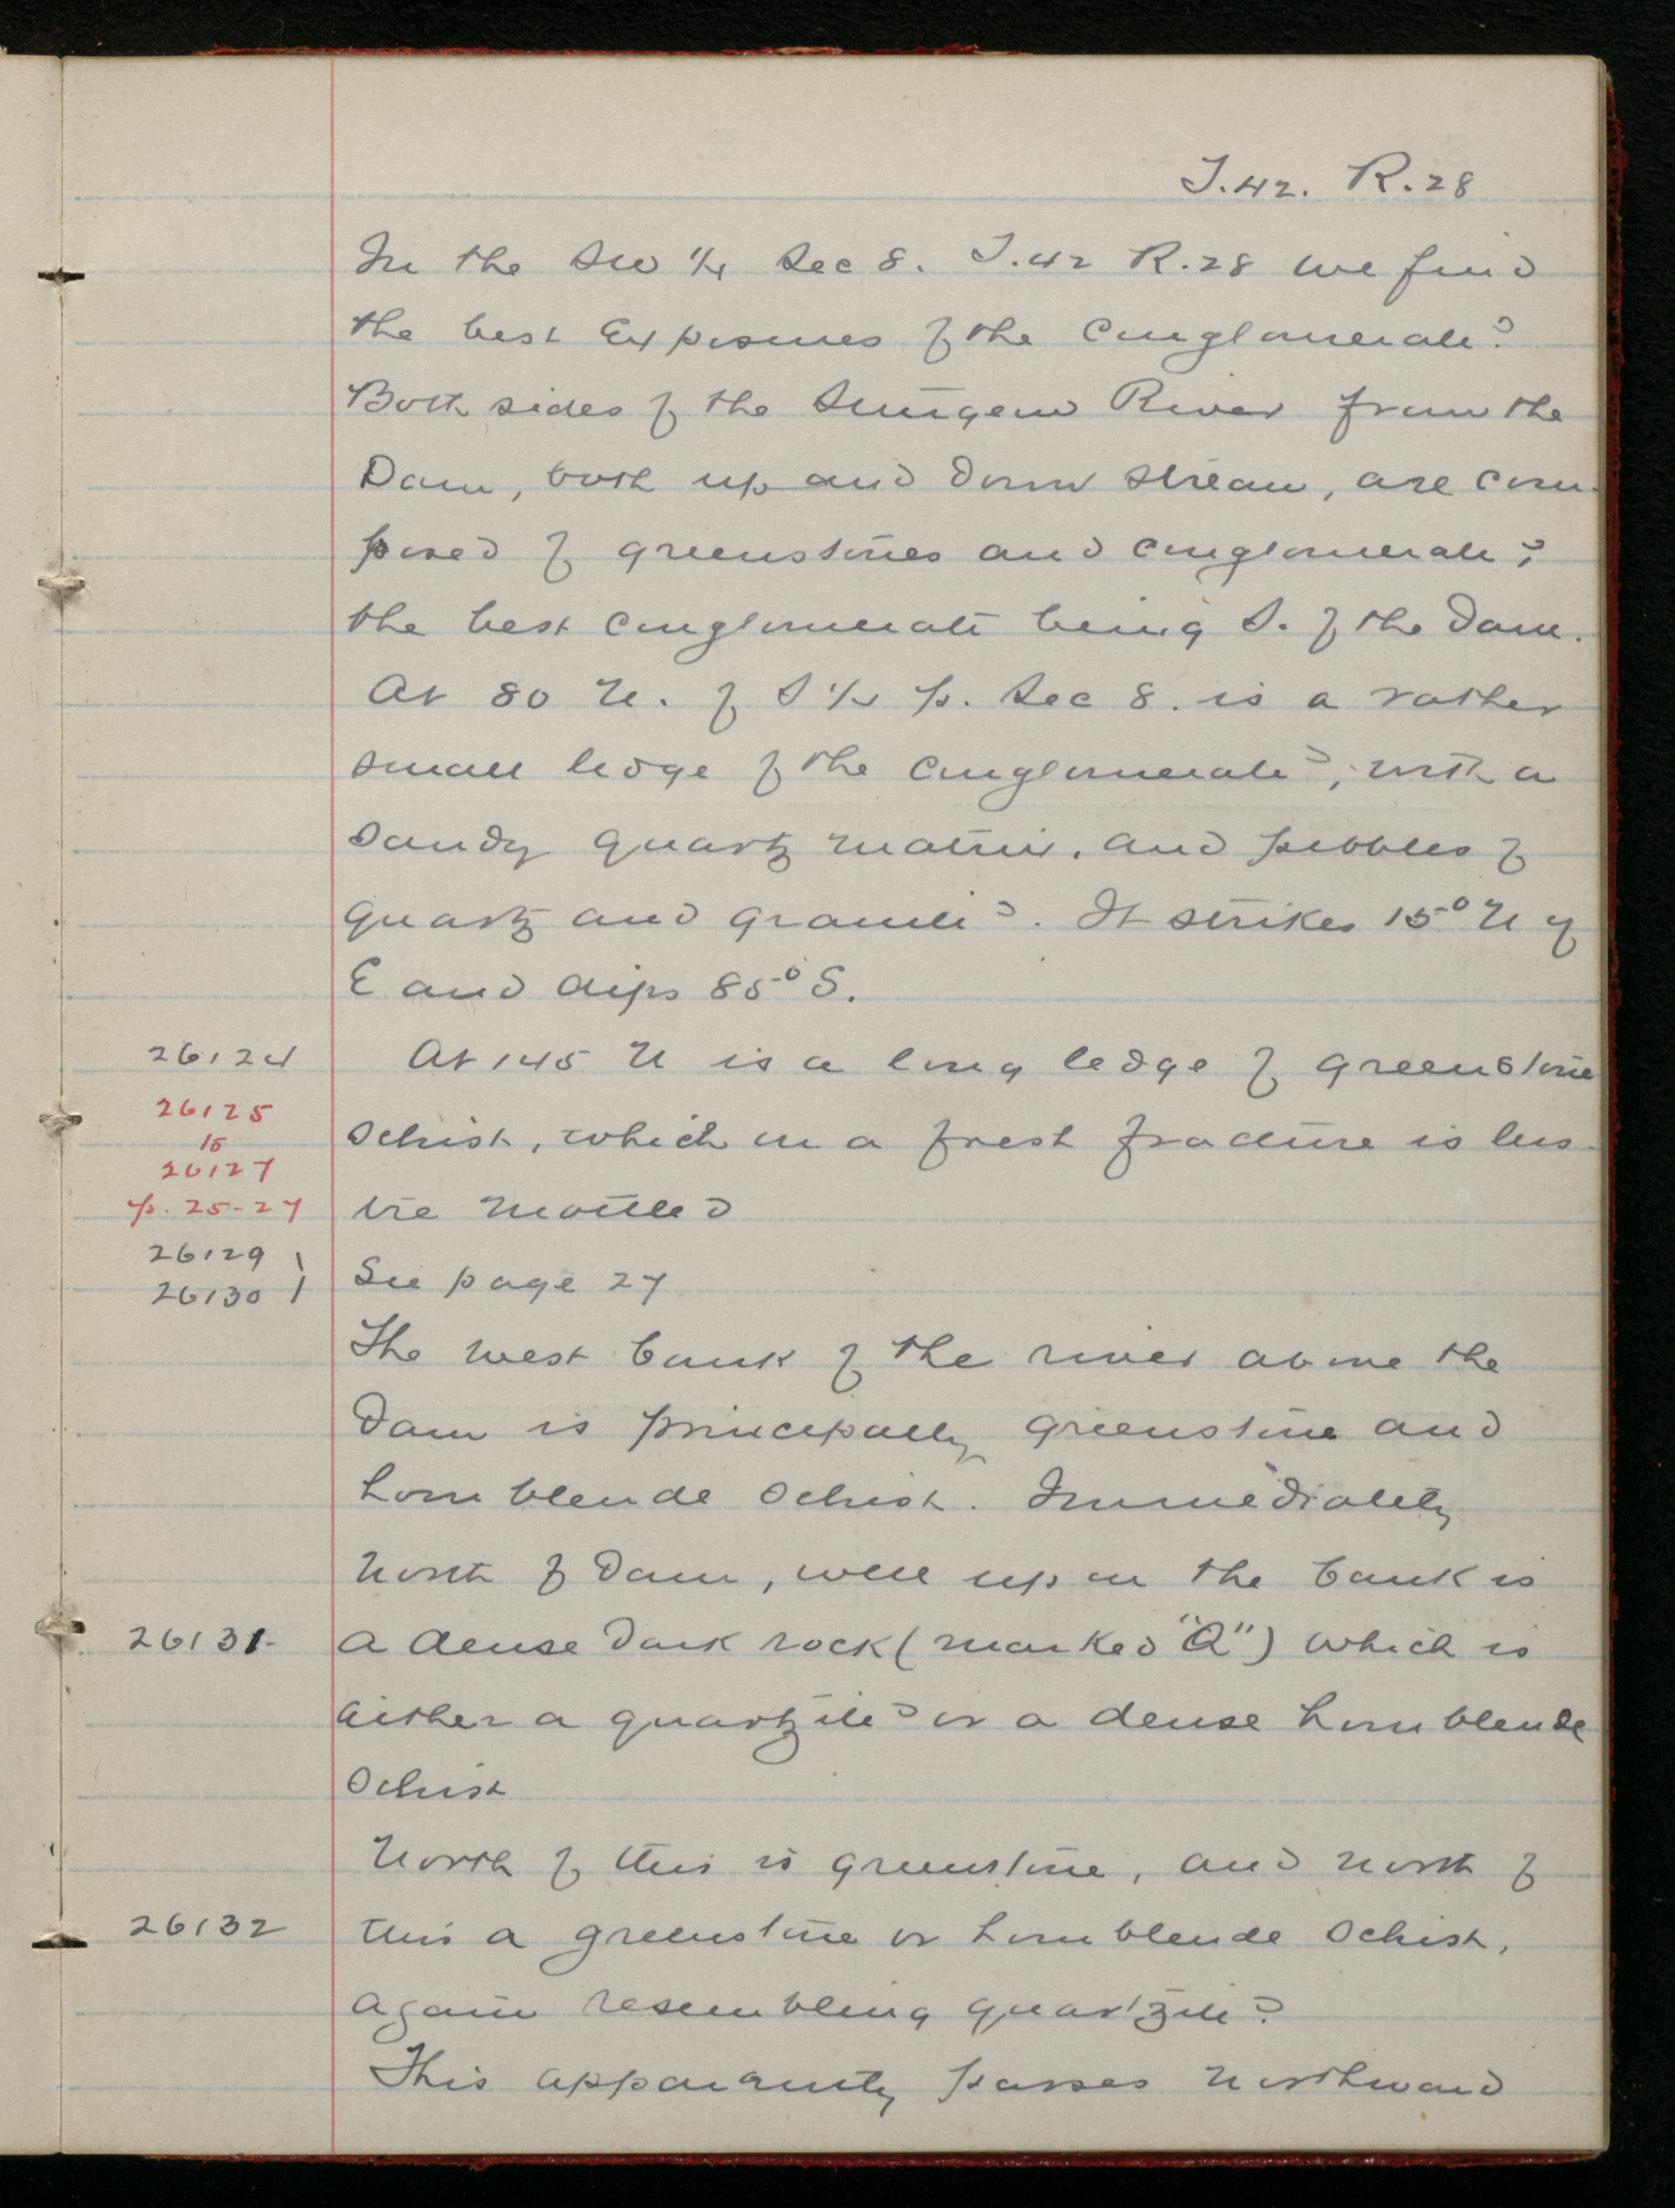 T.42. R.28
In the SW 1/4 Sec 8. T.42 R.28 we find
the best Exposures of the Conglomerate.
Both sides of the Sturgeon River from the
Dam, both up and down stream, are com-
posed of greenstones and conglomerate;
the best conglomerate being S. of the Dam.
At 80 N. of S 1/4 p. Sec 8. is a rather
small ledge of the conglomerate, with a
sandy quartz matrix, and pebbles of
quartz and granite. It strikes 15° N of
E and dips 85° S.
26124 At 145 N is a long ledge of greenstone
26125
15
schist, which on a fresh fracture is lus-
26127
p. 25-27 tre mottled
26129
26130 See page 27
The west bank of the river above the
Dam is principally greenstone and
hornblende schist. Immediately
north of Dam, well up on the bank is
26131- a dense dark rock (marked "Q") which is
either a quartzite or a dense hornblende
schist
North of this is greenstone, and north of
26132 this a greenstone or hornblende schist,
again resembling quartzite.
This apparantly passes northward